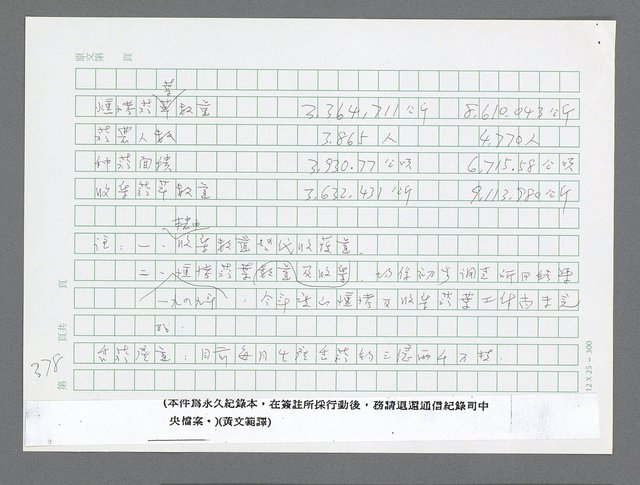 原文第 頁
葉
燻烤菸草數量 3,364,711公斤 8,610,043公斤
菸農人數 3,865人 4,770人
種菸面積 3,930.77公頃 6,715.58公頃
收集菸草數量 3,632,437公斤 9,113,980公斤
註:一、收集數量 代收穫量。
二、燻烤菸葉數量及收集,均係初步調查所得結果
一九四九年,今年 燻烤及收集菸葉工作尚未完
香菸產量:目前每月生產香菸約三億兩千萬枝
378
第 頁共 頁
12 X 25 = 300
(本件爲永久紀錄本,在簽註所採行動後,務請退還通信紀錄司中
央檔案。)(黃文範譯)